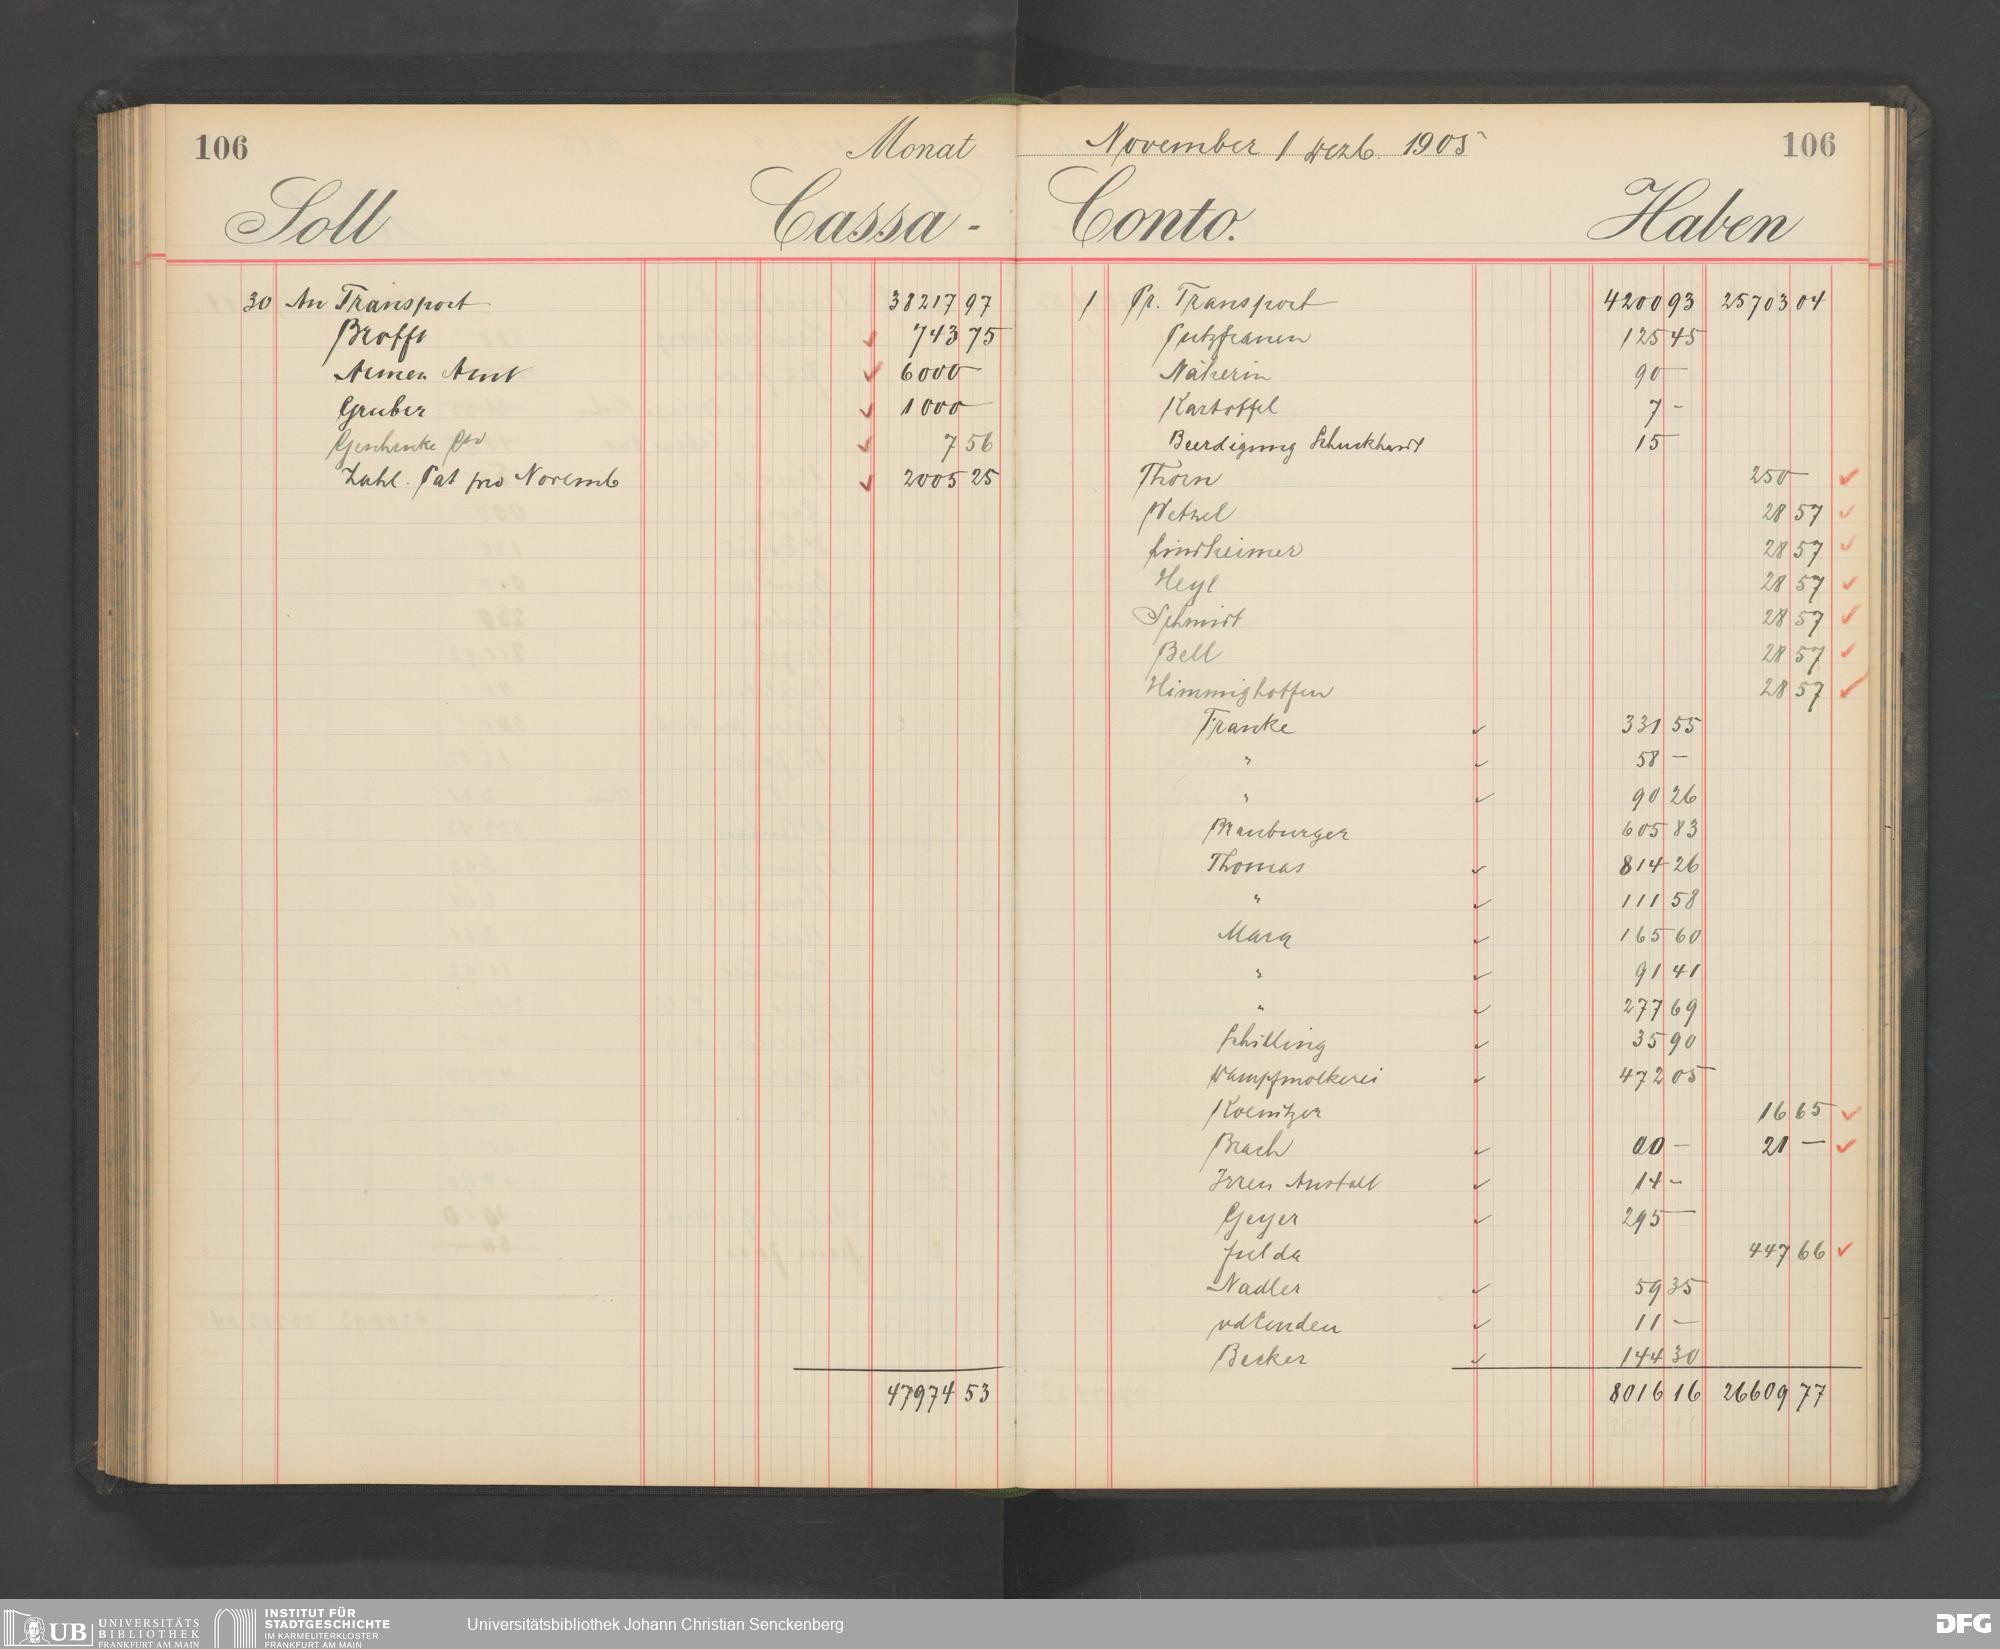 106 Monat November / Dezb. 1905 106
Soll Cassa - Conto. Haben
30 An Transport 38217 97
Brofft 743 75
Armen Amt 6000 —
Gruber 1000 —
Geschenke Cto 7 56
Zahl. Pat pro Novemb 2005 25
47974 53
1 Pr. Transport 4200 93 25703 04
Putzfrauen 125 45
Näherin 90 —
Kartoffel 7 -
Beerdigung Schuckhardt 15
Thorn 250 —
Wetzel 28 57
Lindheimer 28 57
Heyl 28 57
Schmidt 28 57
Bell 28 57
Himmighoffen 28 57
Francke 331 55
" 58 —
" 90 26
Brauburger 605 83
Thomas 814 26
" 111 58
Marx 165 60
" 91 41
" 277 69
Schilling 35 90
Dampfmolkerei 472 05
Koenitzer 16 65
Brach 00 — 21 —
Irren Anstalt 14 -
Geyer 295 —
Fulda 447 66
Nadler 59 35
vdEmden 11 —
Becker 144 30
8016 16 26609 77
UB UNIVERSITÄTS
BIBLIOTHEK
FRANKFURT AM MAIN
INSTITUT FÜR
STADTGESCHICHTE
IM KARMELITERKLOSTER
FRANKFURT AM MAIN
Universitätsbibliothek Johann Christian Senckenberg
DFG